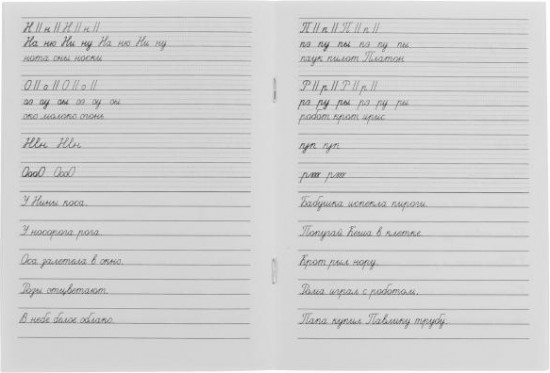 Н || н || Н || н ||
На но Ни ну На но Ни ну
нота сны носки
О || о || О || о ||
оз оу сы оз оу сы
око молоко огонь
Нвн Нвн
ОооО ОооО
У Нины коса.
У носорога рога.
Оса залетела в окно.
Розы отцветают.
В небе белое облако.
П || п || П || п ||
пз пу пы пз пу пы
паук пилот Платон
Р || р || Р || р ||
рз ру ры рз ру ры
робот крот ирис
пуп пуп
Бабушка испекла пироги.
Попугай Кеша в клетке.
Крот рыл нору.
Рома играл с роботом.
Папа купил Павлику трубу.